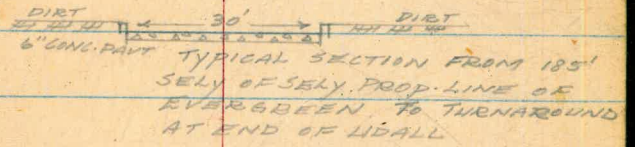 DIRT 30' DIRT
6" CONC. PAVT
TYPICAL SECTION FROM 185'
SELY OF SELY. PROP. LINE OF
EVERGREEN TO TURNAROUND
AT END OF UDALL